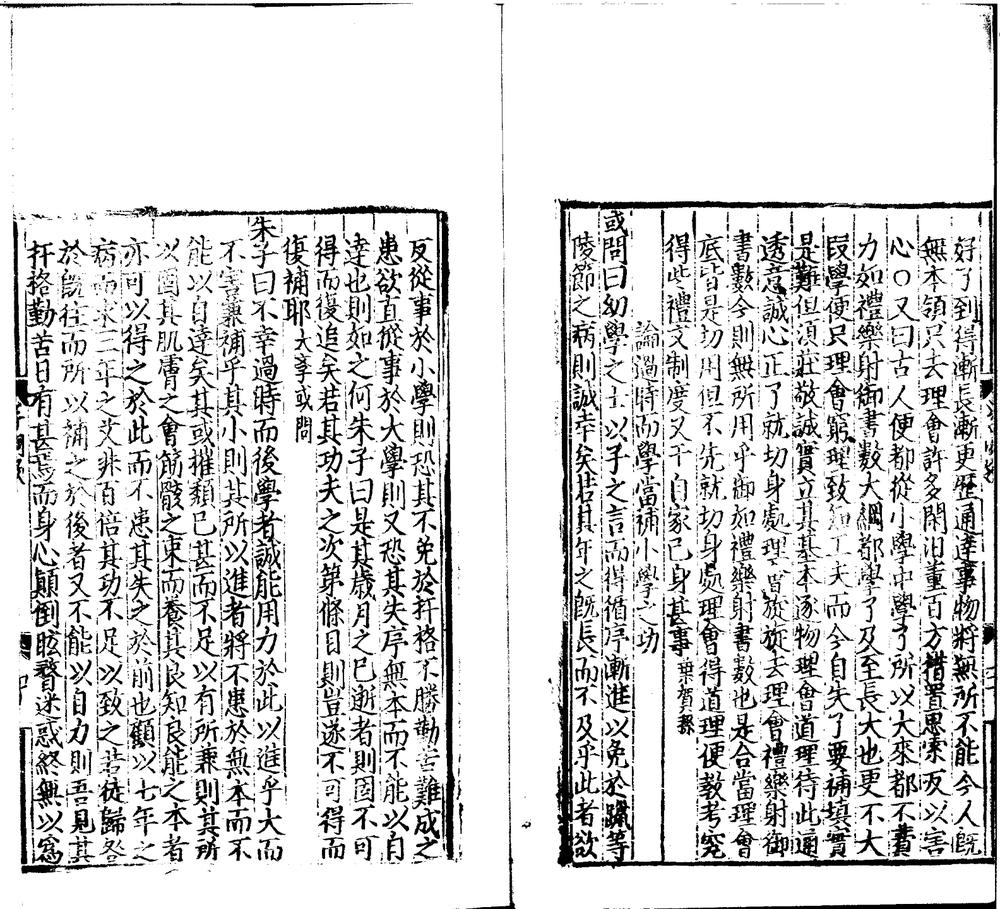 好了到得漸長漸更歷通達事物將無所不能今人既
無本領只去理會許多閑汩董百方措置思索反以害
心○又曰古人便都從小學中學了所以大來都不費
力如禮樂射御書數大綱都學了及至長大也更不大
段學便只理會窮理致知工夫而今自失了要補填實
是難但須莊敬誠實立其基本逐物理會道理待此通
透意誠心正了就切身處理會旋旋去理會禮樂射御
書數今則無所用乎御如禮樂射書數也是合當理會
底皆是切用但不先就切身處理會得道理便教考究
得些禮文制度又干自家己身甚事葉賀孫
論過時而學當補小學之功
或問曰幼學之士以子之言而得循序漸進以免於躐等
陵節之病則誠幸矣若其年之既長而不及乎此者欲
反從事於小學則恐其不免於扞格不勝勤苦難成之
患欲直從事於大學則又恐其失序無本而不能以自
達也則如之何朱子曰是其歲月之已逝者則固不可
得而復追矣若其功夫之次第條目則豈遂不可得而
復補耶大學或問
朱子曰不幸過時而後學者誠能用力於此以進乎大而
不害兼補乎其小則其所以進者將不患於無本而不
能以自達矣其或摧頹已甚而不足以有所兼則其所
以固其肌膚之會筋骸之束而養其良知良能之本者
亦可以得之於此而不患其失之於前也顧以七年之
病而求三年之艾非百倍其功不足以致之若徒歸咎
於既往而所以補之於後者又不能以自力則吾見其
扞格勤苦日有甚焉而身心顛倒眩瞀迷惑終無以爲